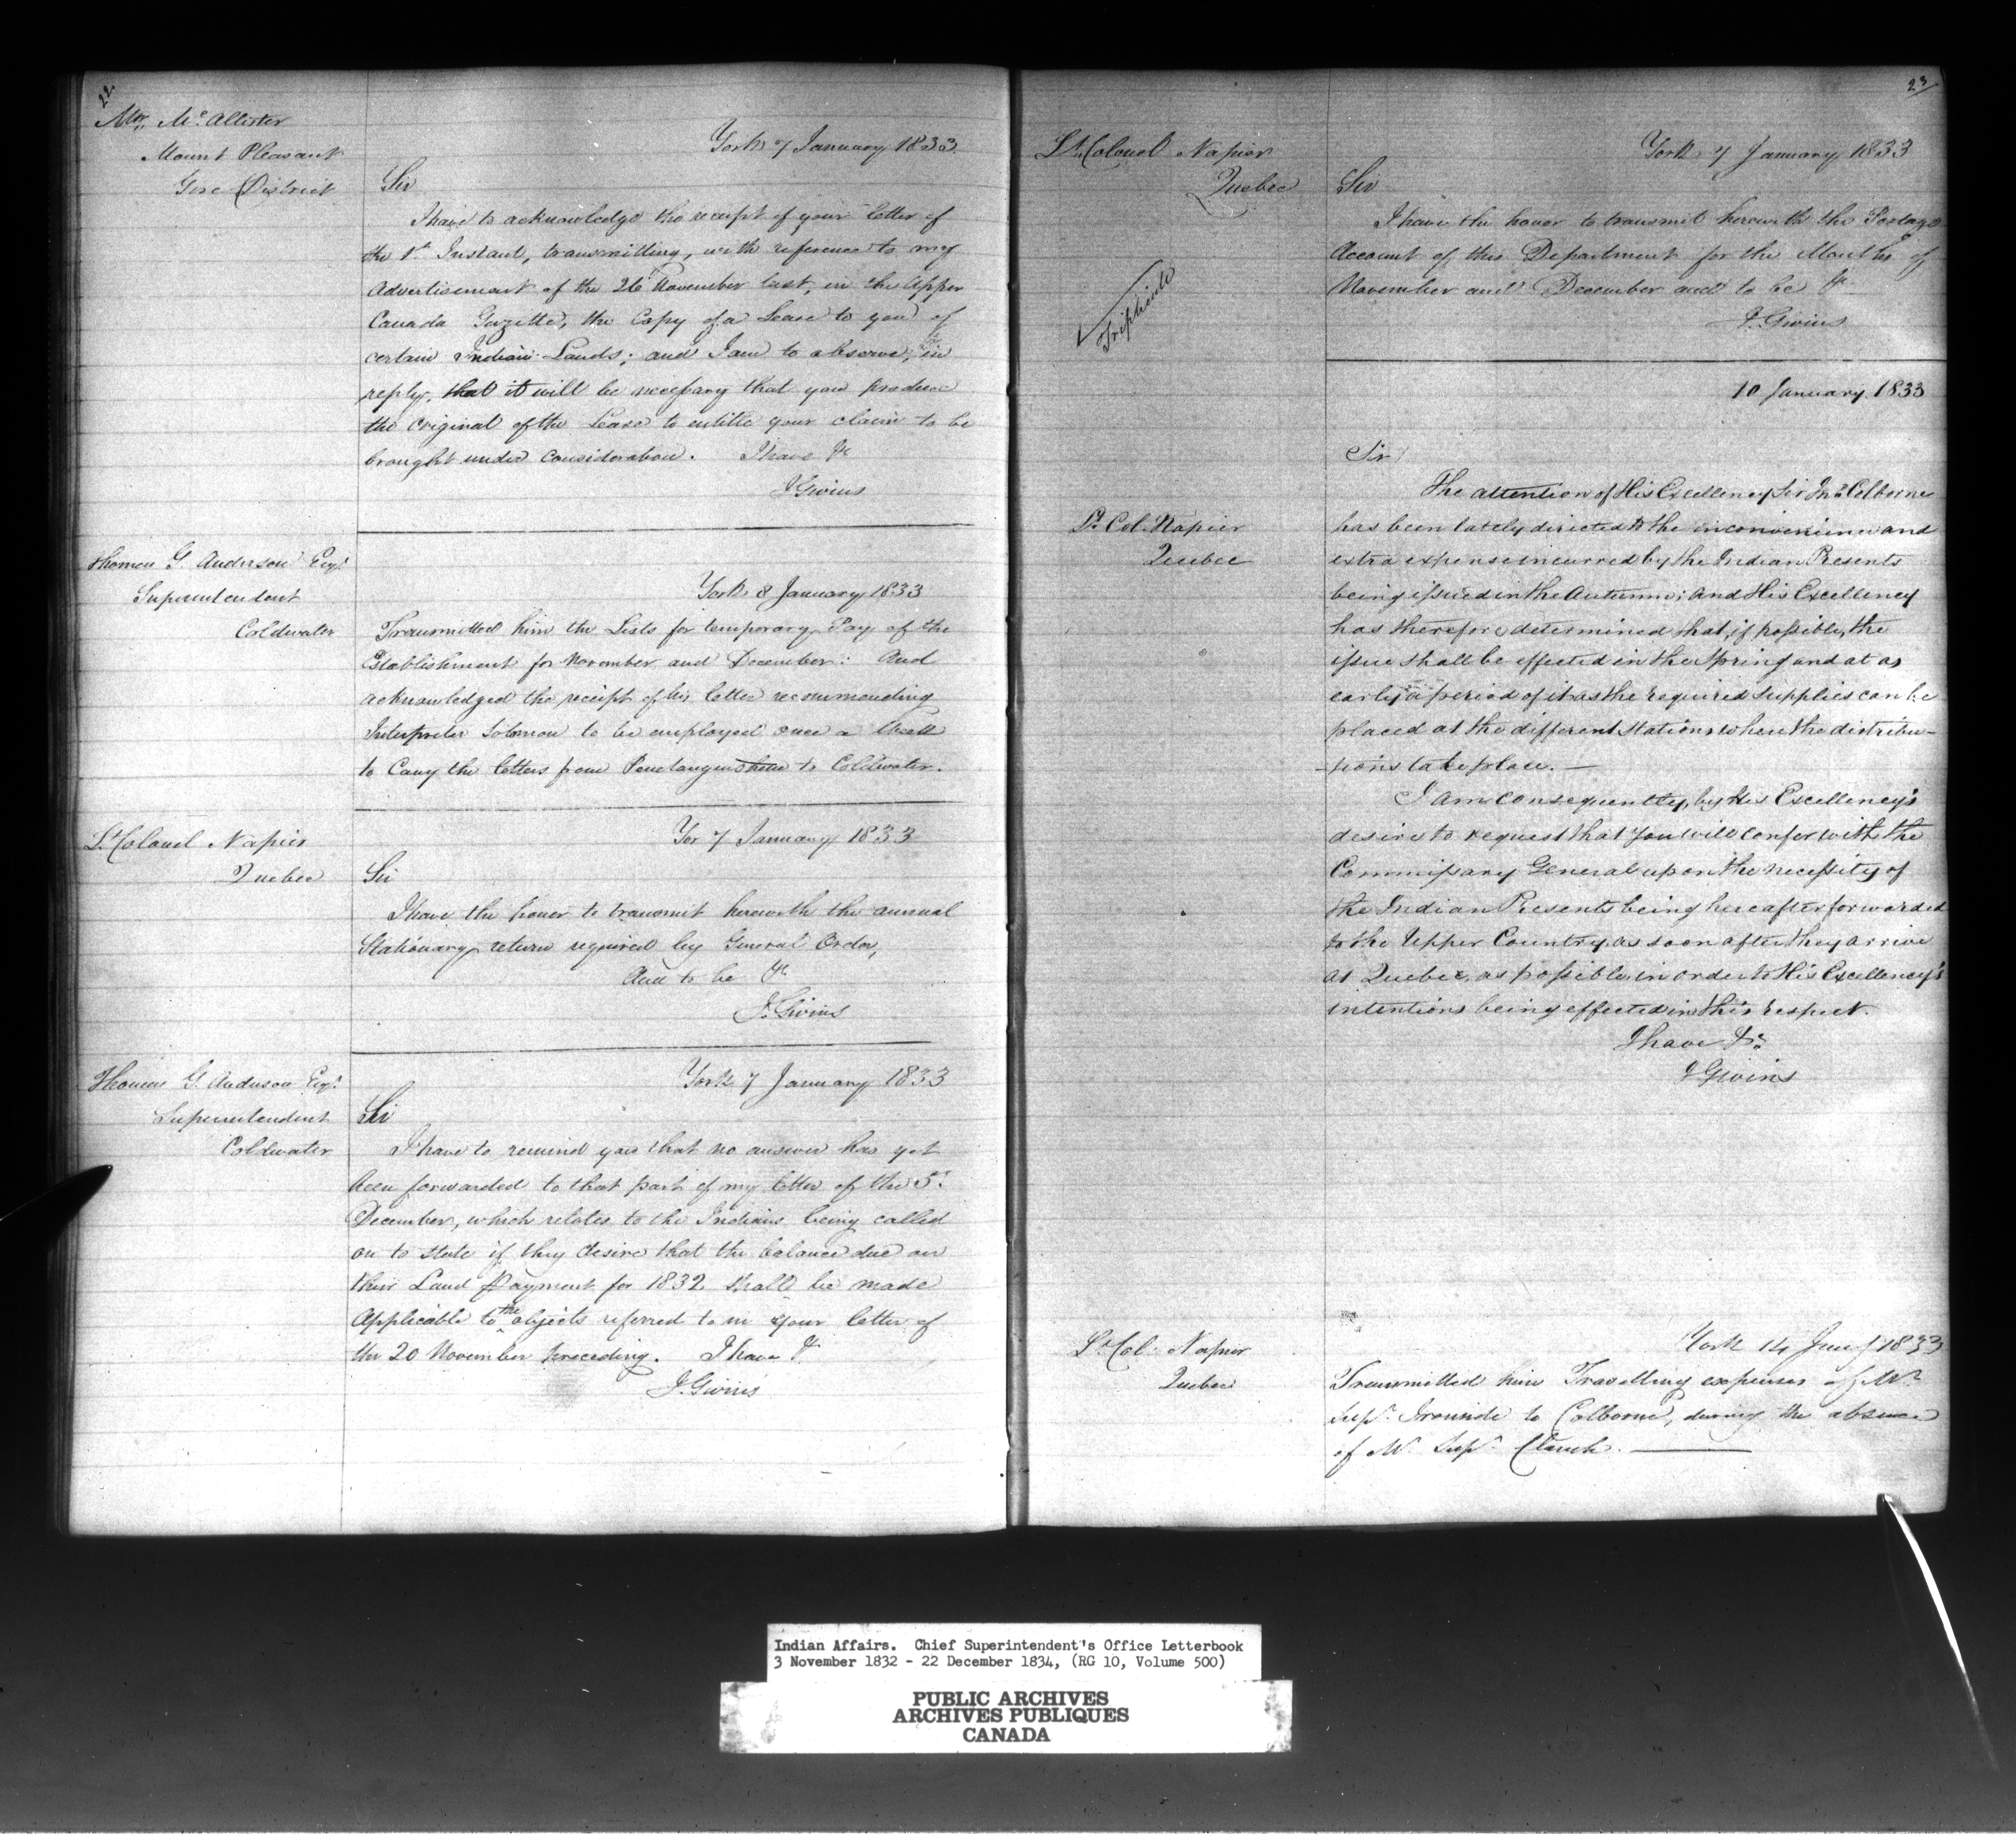 22
Mr. Mc.Allister
Mount Pleasant
Gore District
York 7 January 1833
Sir
I have to acknowledge the receipt of your letter of
the 1st Instant, transmitting, with reference to my
Advertisement of the 26 November last, in the Upper
Canada Gazette, the Copy of a Lease to you of
certain Indian Lands; and I am to observe, in
reply, that it will be necessary that you produce
the Original of the Lease to entitle your claim to be
brought under consideration. I have &c
J Givins
Thomas G. Anderson Esqr.
Superintendent
Coldwater
York 8 January 1833
Transmitted him the Lists for temporary Pay of the
Establishment for November and December: And
acknowledged the receipt of his letter recommending
Interpreter Solomon to be employed once a Week
to Carry the letters from Penetanguishene to Coldwater.
Lt. Colonel Napier
Quebec
Yor 7 January 1833
Sir
I have the honor to transmit herewith the annual
Stationary return required by General Order,
And to be &c
J. Givins
Thomas G. Anderson Esqr.
Superintendent
Coldwater
York 7 January 1833
Sir
I have to remind you that no answer has yet
been forwarded to that part of my letter of the 5th
December, which relates to the Indians being called
on to state if they desire that the balance due on
their Land Payment for 1832 shall be made
Applicable to the objects referred to in your letter of
the 20 November preceding. I have &c
J. Givins
23
Lt. Colonel Napier
Quebec
York 7 January 1833
Sir
I have the honor to transmit herewith the Postage
Account of this Department for the Months of
November and December and to be &c
J. Givins
Triplicate
10 January 1833
Lt. Col. Napier
Quebec
Sir
The attention of His Excellency Sir Jno. Colborne
has been lately directed to the inconvenience and
extra expense incurred by the Indian Presents
being issued in the Autumn; And His Excellency
has therefore determined that, if possible, the
issue shall be effected in the Spring and at as
early a period of it as the required supplies can be
placed at the different Stations where the distribu-
-tions take place. —
I am consequently, by His Excellency's
desire to request that you will confer with the
Commissary General upon the necessity of
the Indian Presents being hereafter forwarded
to the Upper Country as soon after they arrive
at Quebec, as possible, in order to His Excellency's
intentions being effected in this respect.
I have &c
J Givins
Lt Col. Napier
Quebec
York 14 Jany 1833
Transmitted him Travelling expenses of Mr.
Supt. Ironside to Colborne, during the absence
of Mr. Supt. Clench.
Indian Affairs. Chief Superintendent's Office Letterbook
3 November 1832 - 22 December 1834, (RG 10, Volume 500)
PUBLIC ARCHIVES
ARCHIVES PUBLIQUES
CANADA